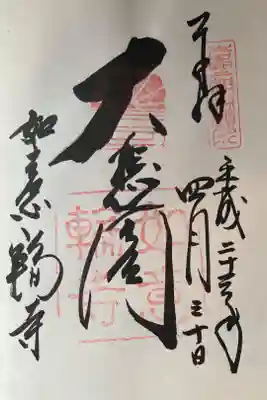 奉拝
平成二十三年
四月三十日
大悲閣
如意輪寺
如意
輪寺